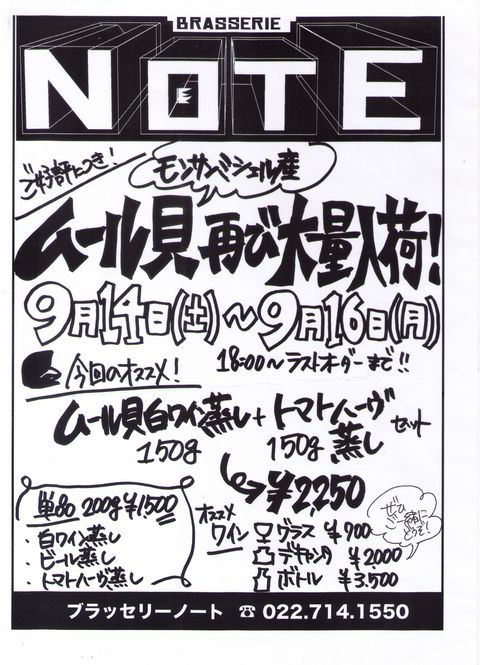 BRASSERIE
NOTE
ご好評につき!
モンサンミシェル産
ムール貝再び大量入荷!
9月14日(土)〜9月16日(月)
18:00〜ラストオーダーまで!!
今回のオススメ!
ムール貝白ワイン蒸し+トマトハーヴ蒸しセット
150g 150g
¥2,250
単品 200g ¥1,500
・白ワイン蒸し
・ビール蒸し
・トマトハーヴ蒸し
オススメワイン
グラス ¥700
デキャンタ ¥2,000
ボトル ¥3,500
ぜひご一緒にどうぞ!
ブラッセリーノート ☎ 022.714.1550